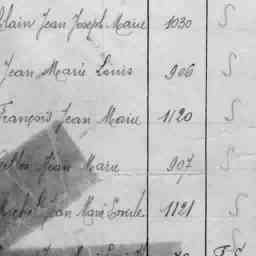 Alain Jean Joseph Marie 1030 S
Jean Marie Louis 906 S
François Jean Marie 1120 S
Jean Marie 907 S
Michel Jean Marie 1121 S